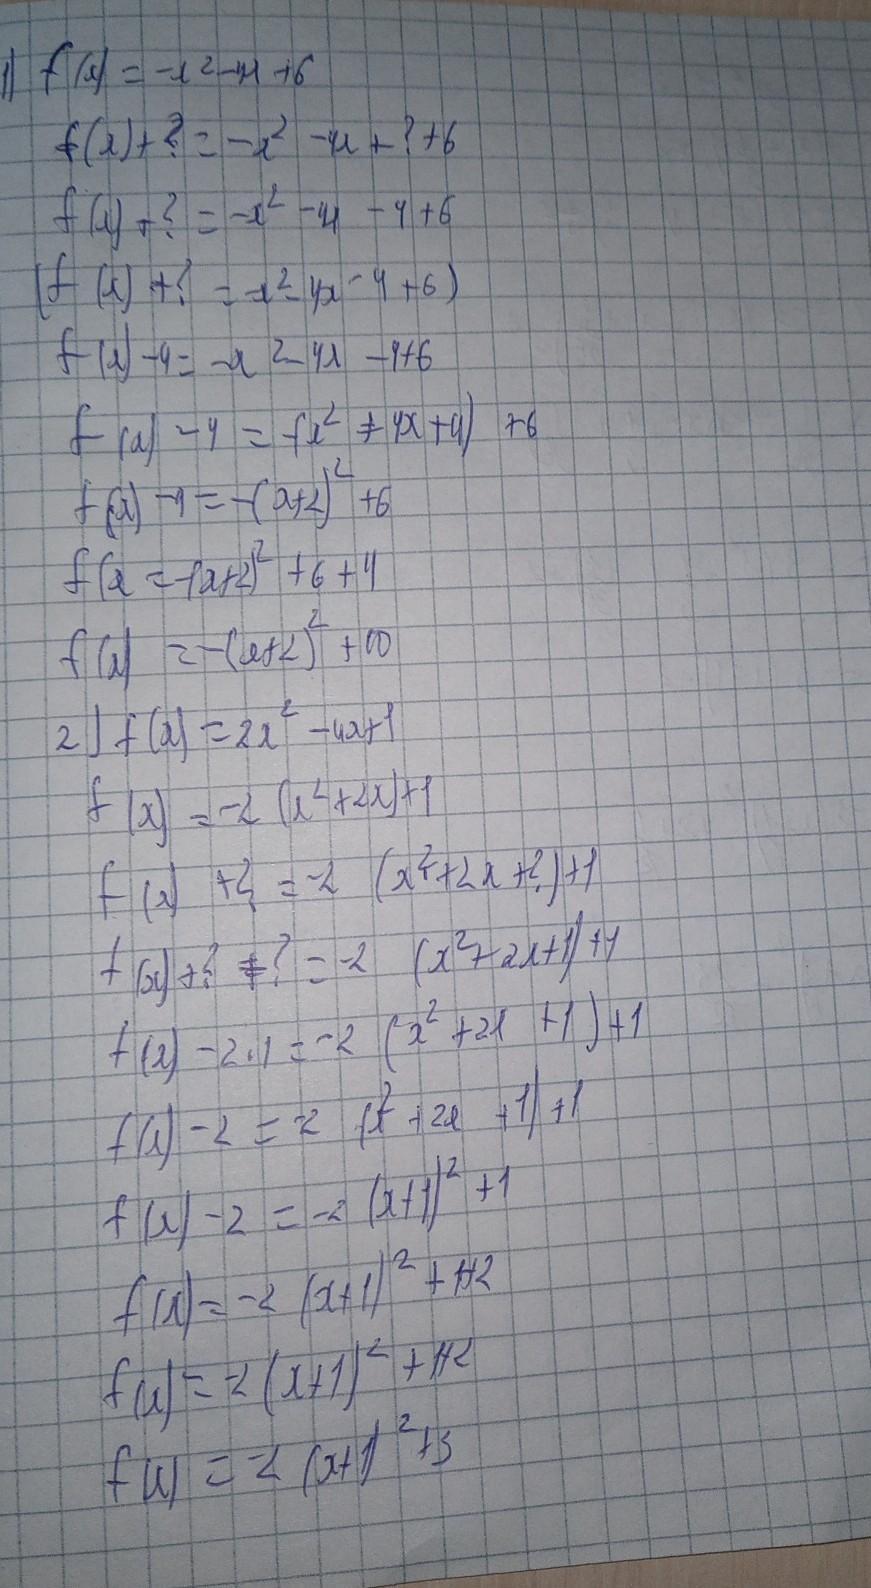 1) f(x) = -x² -4x +6
f(x)+? = -x² -4x+?+6
f(x)+? = -x² -4x -4+6
(f(x)+? = -x²-4x-4+6)
f(x)-4= -x²-4x -4+6
f(x) -4 = -(x² +4x+4) +6
f(x) -4 = -(x+2)² +6
f(x = -(x+2)² +6+4
f(x) = -(x+2)² +10
2) f(x) = 2x² -4x+1
f(x) = -2 (x²+2x)+1
f(x) +? = -2 (x²+2x+?)+1
f(x)+? +? = -2 (x²+2x+1)+1
f(x) -2·1 = -2 (x² +2x +1)+1
f(x) -2 = -2 (x² +2x +1)+1
f(x) -2 = -2 (x+1)² +1
f(x) = -2 (x+1)² +1+2
f(x) = -2 (x+1)² +1+2
f(x) = -2 (x+1)² +3